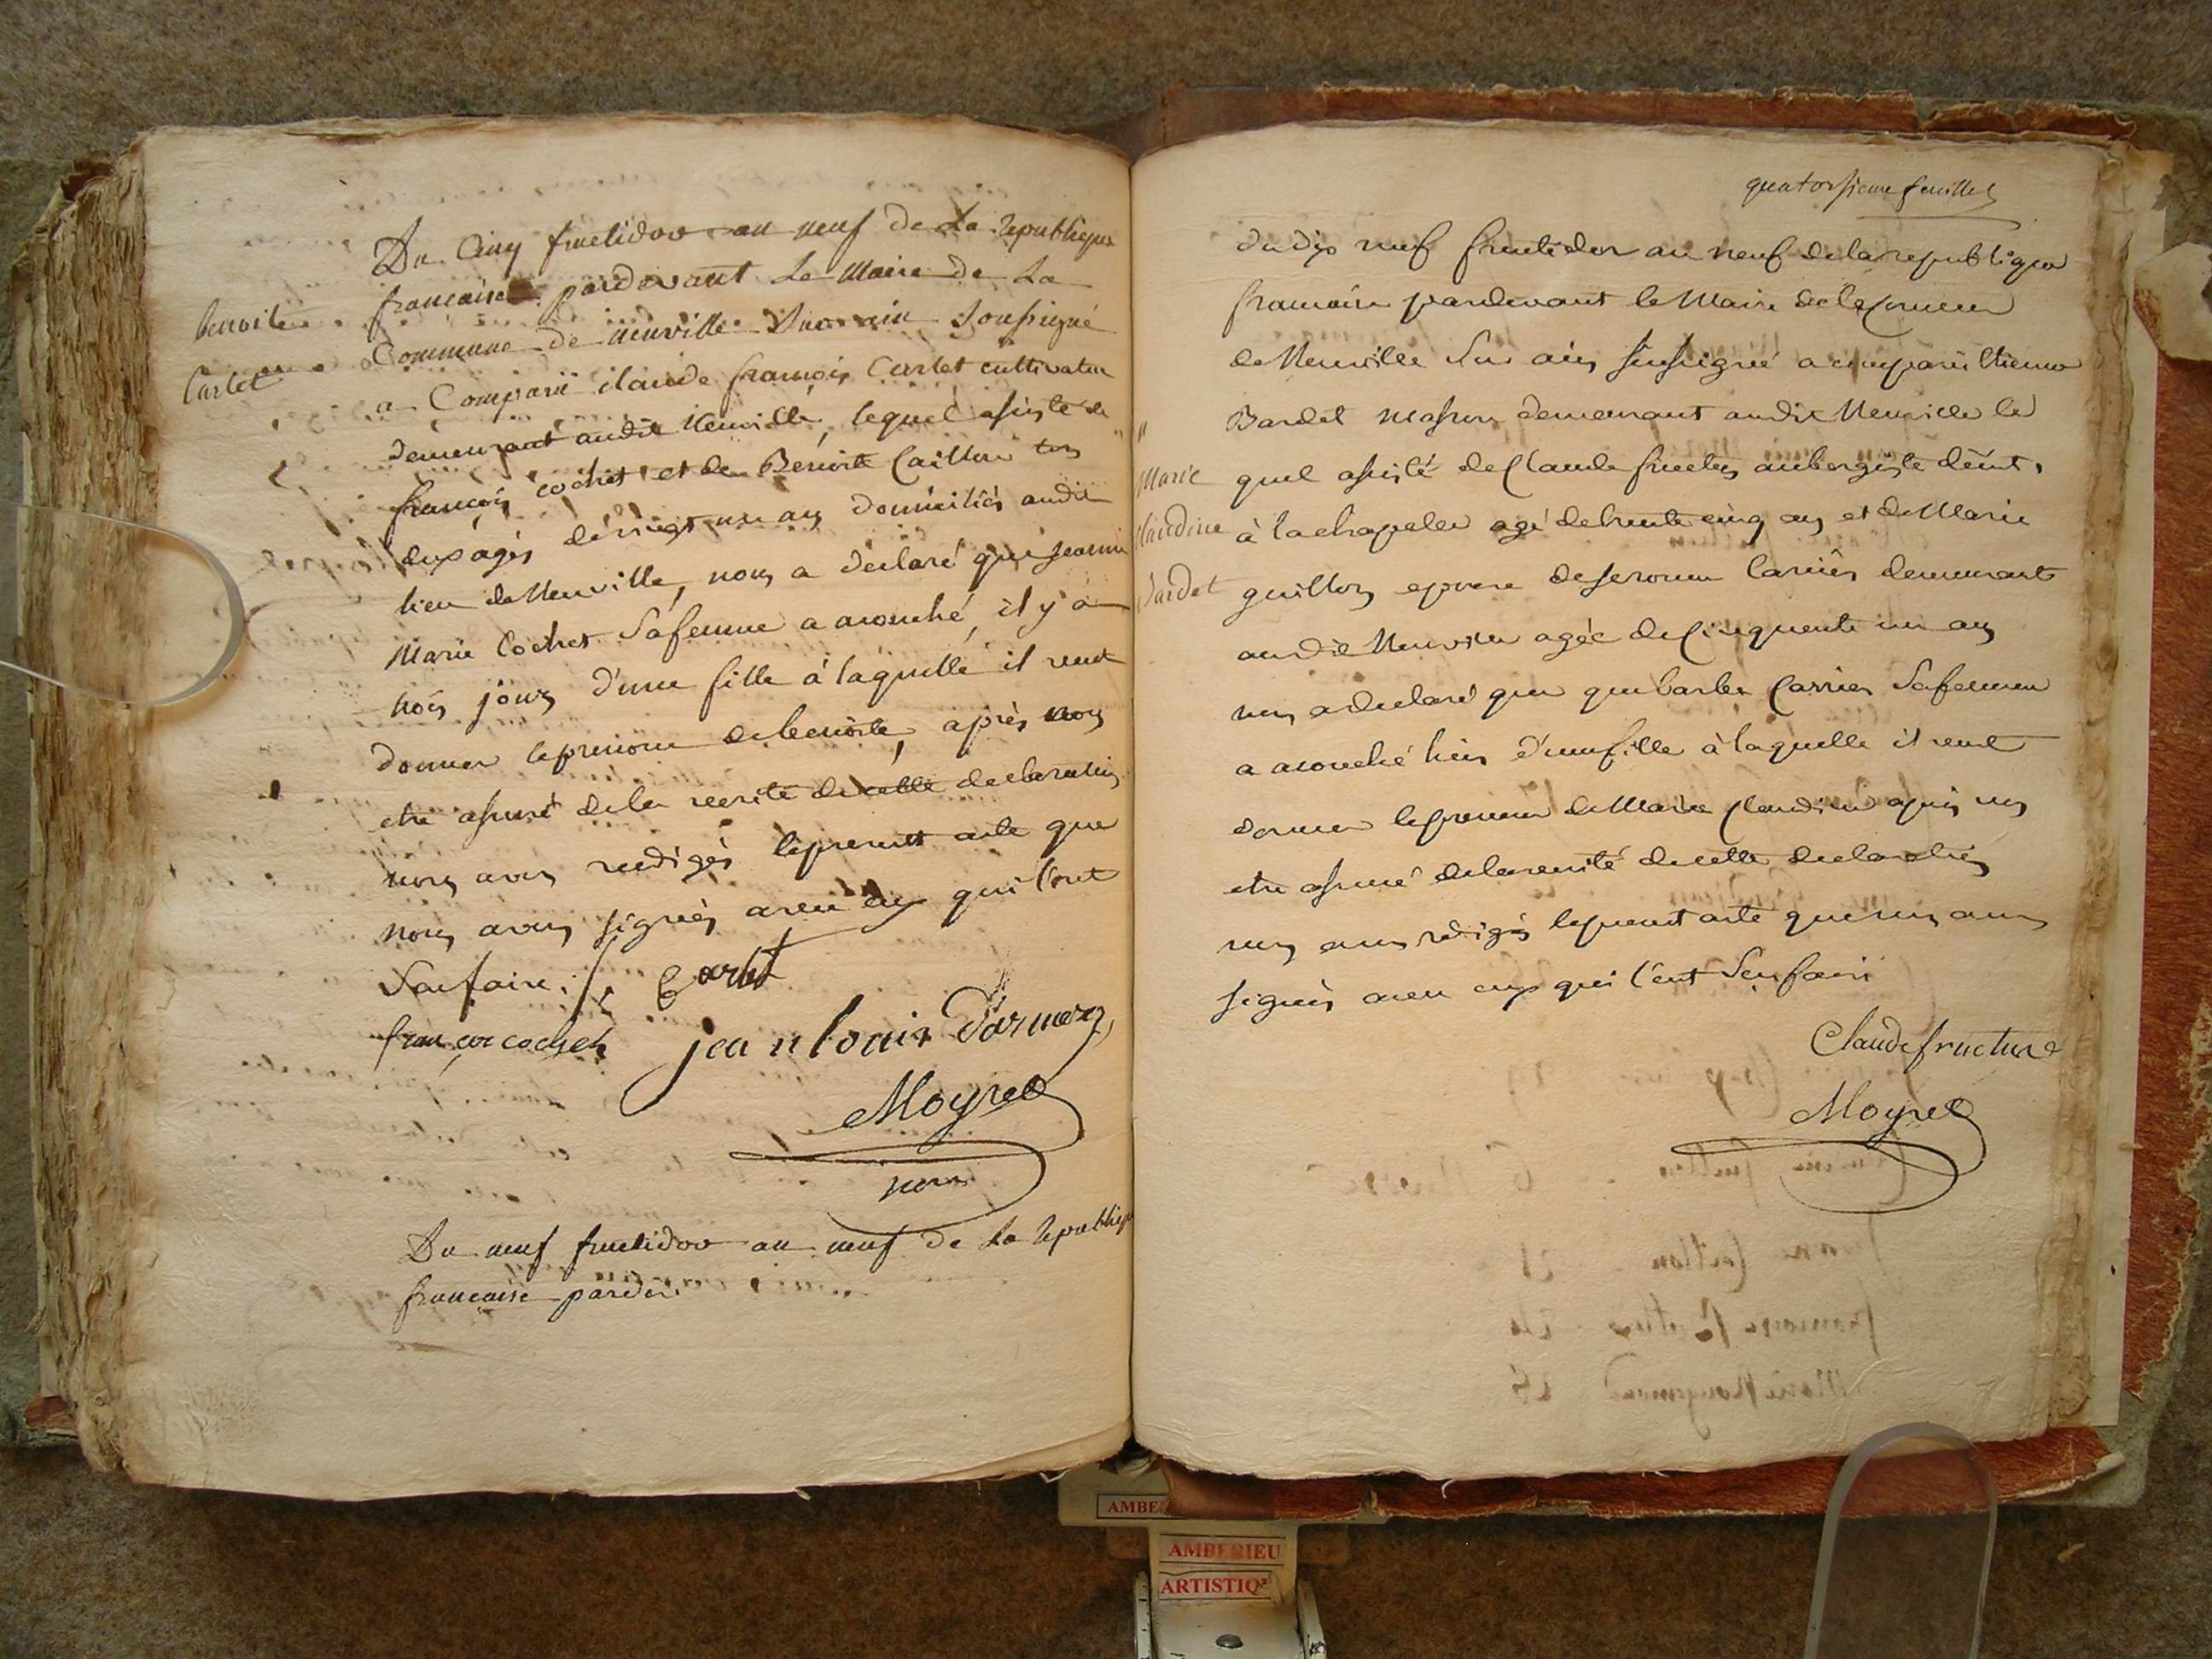 Benoite
Carlet
Du Cinq fructidor an neuf de La Republique
francaise pardevant Le Maire de La
Commune de neuville Sur ain Soussigné
a Comparü claude françois Carlet cultivateur
demeurant audit Neuville, lequel assisté de
françois cochet et de Benoite Caillon tous
deux agés de vingt un ans domiciliés audit
lieu de Neuville, nous a déclaré que jeanne
Marie Cochet Sa femme a acouché, il y a
trois jours d'une fille à laquelle il veut
donner le prenom de benoite, après nous
etre assuré de la verité de cette declaration
nous avons redigés le present acte que
nous avons signés avec eux qui l'ont
Sçu faire.
Carlet
françoi cochet jean louis Darmez
Moyret
maire
Du neuf fructidor an neuf de La Republique
francaise pardev
quatorsieme feuillet
Marie
Claudine
Bardet
du dix neuf fructidor an neuf de la republique
francaise pardevant le Maire de la Commune
de Neuville Sur ain soussigné a comparu Etienne
Bardet masson demeurant audit Neuville le
quel assisté de Claude fructus aubergiste deint.
à la chapelle agé de trente cinq ans et de Marie
guillon epouse de jerome Carrier demeurant
audit Neuville agée de Cinquente un ans
nous a declaré que que barbe Carrier Sa femme
a acouché hier d'une fille à laquelle il veut
donner le prenom de Marie Claudine après nous
etre assuré de la verité de cette declaration
nous avons redigés le present acte que nous avons
signés avec eux qui l'ont Sçu faire
Claude fructus
Moyret
AMBERIEU
ARTISTIQ